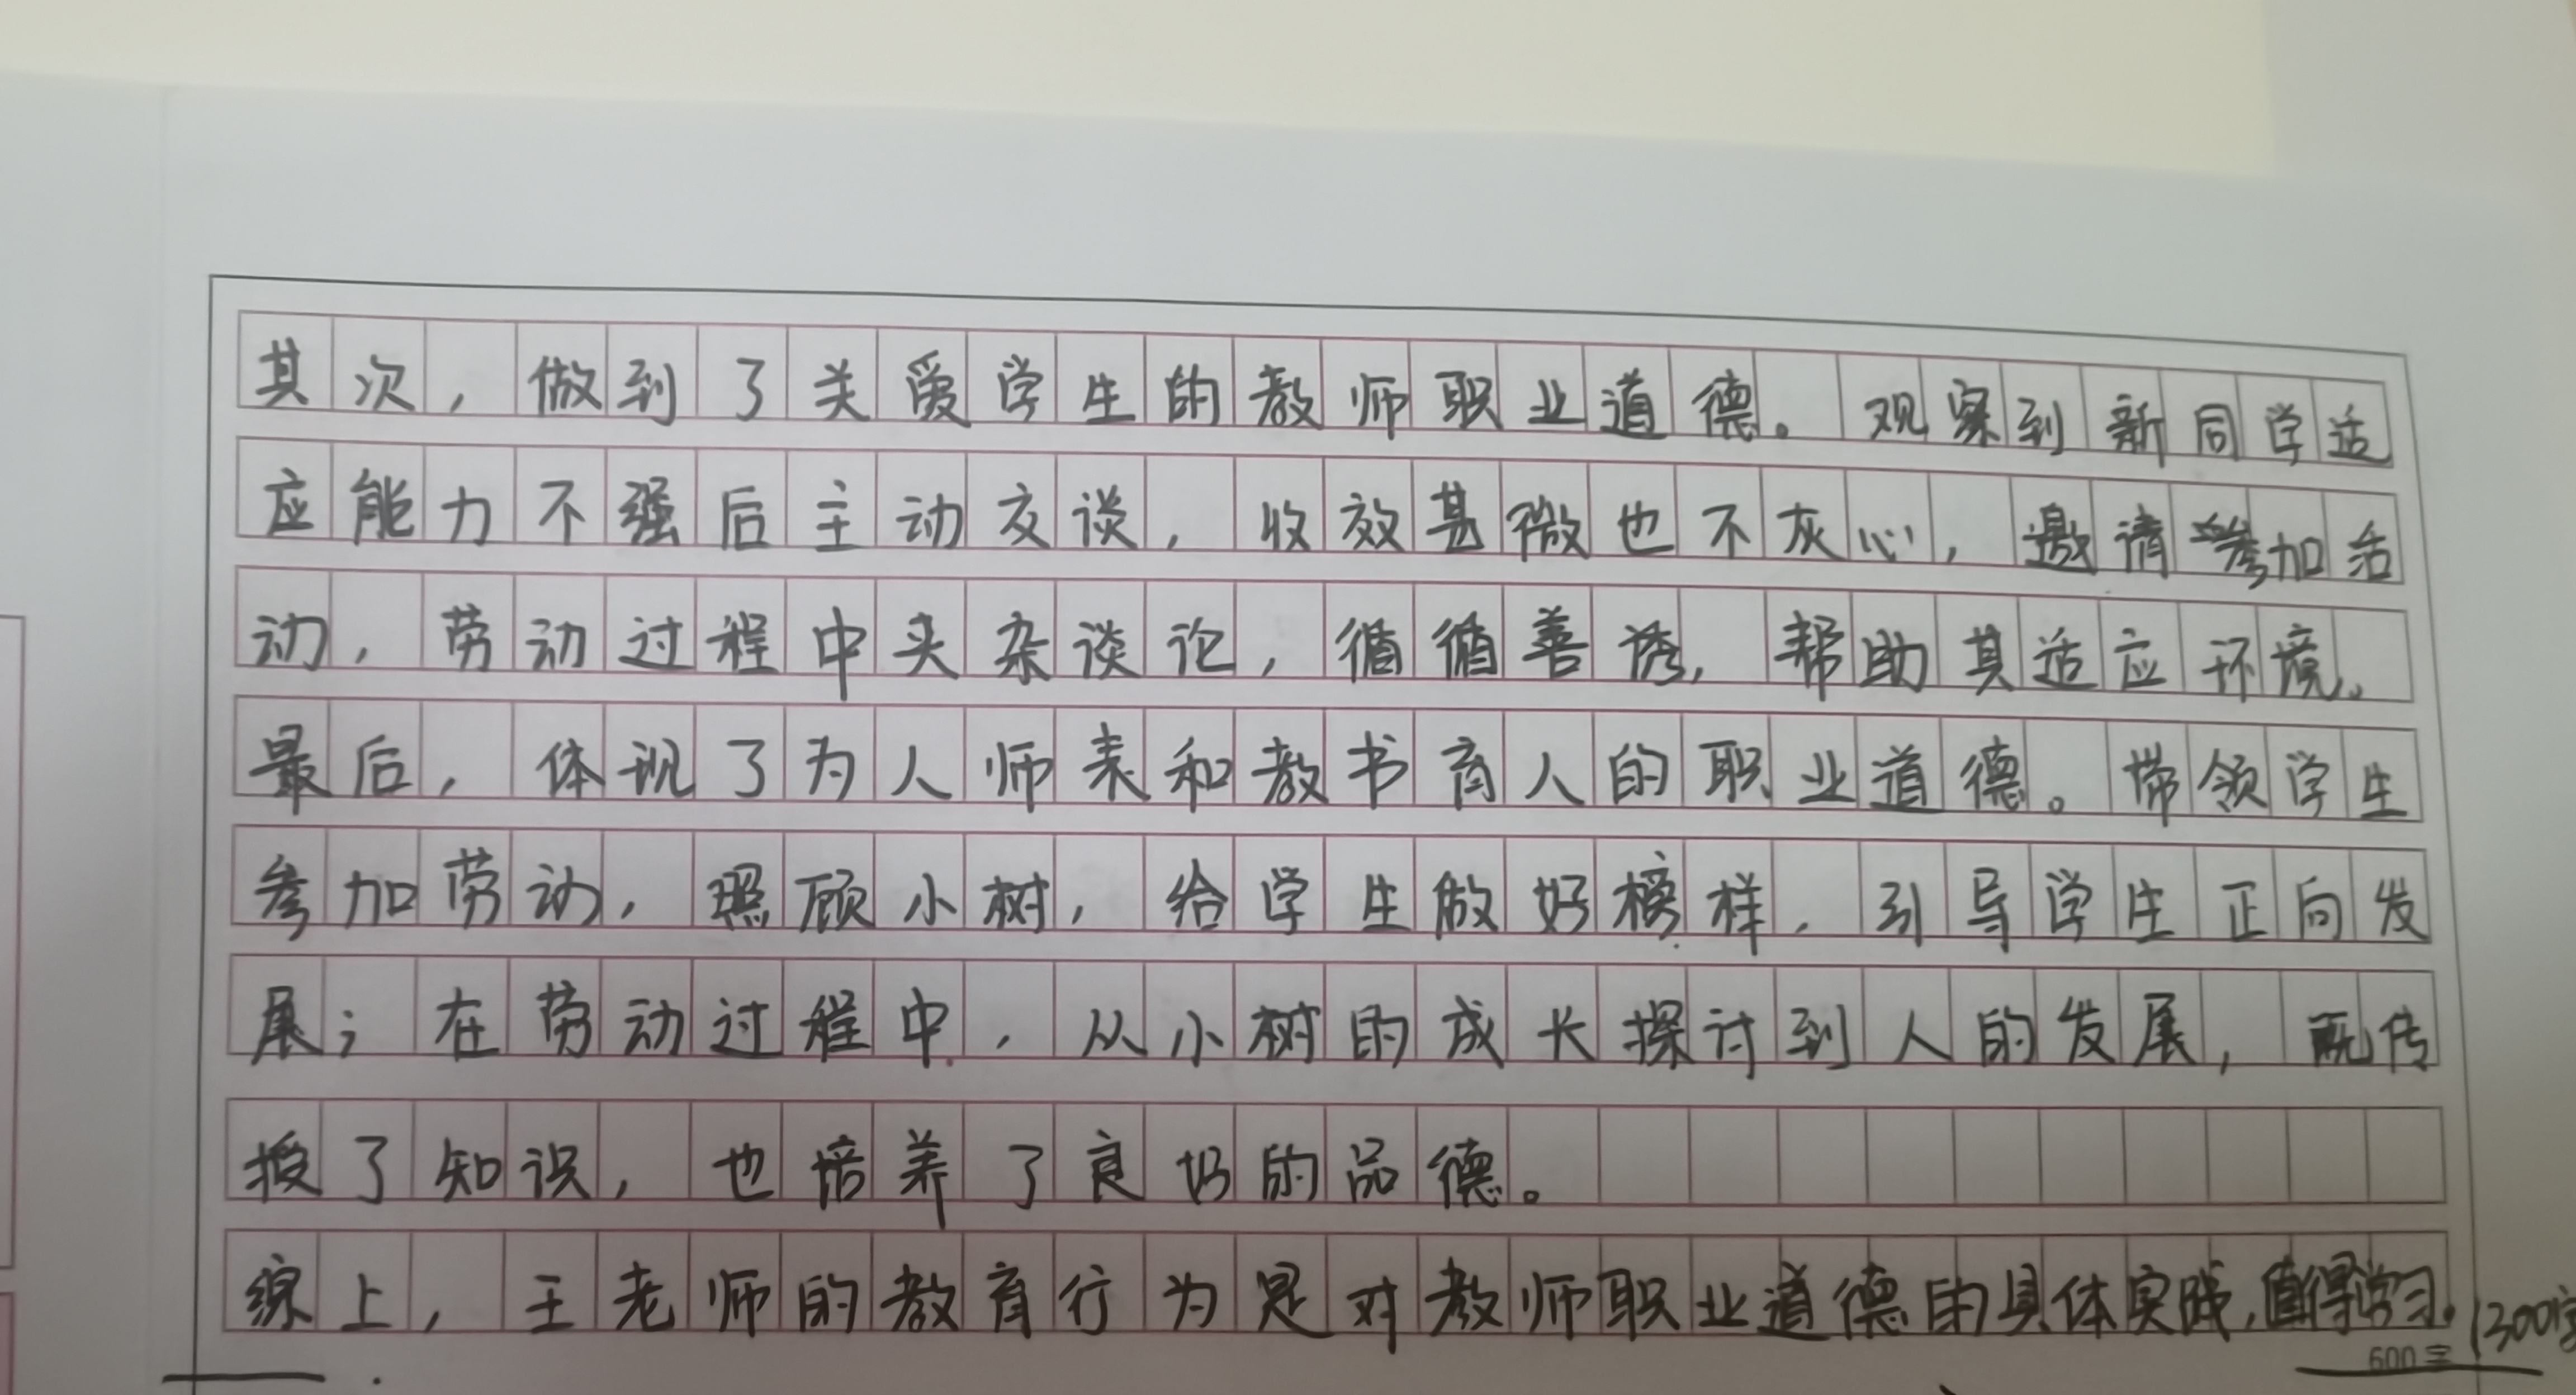 其次，做到了关爱学生的教师职业道德。观察到新同学适
应能力不强后主动交谈，收效甚微也不灰心，邀请参加活
动，劳动过程中夹杂谈论，循循善诱，帮助其适应环境。
最后，体现了为人师表和教书育人的职业道德。带领学生
参加劳动，照顾小树，给学生做好榜样，引导学生正向发
展；在劳动过程中，从小树的成长探讨到人的发展，既传
授了知识，也培养了良好的品德。
综上，王老师的教育行为是对教师职业道德的具体实践，值得学习。
600字